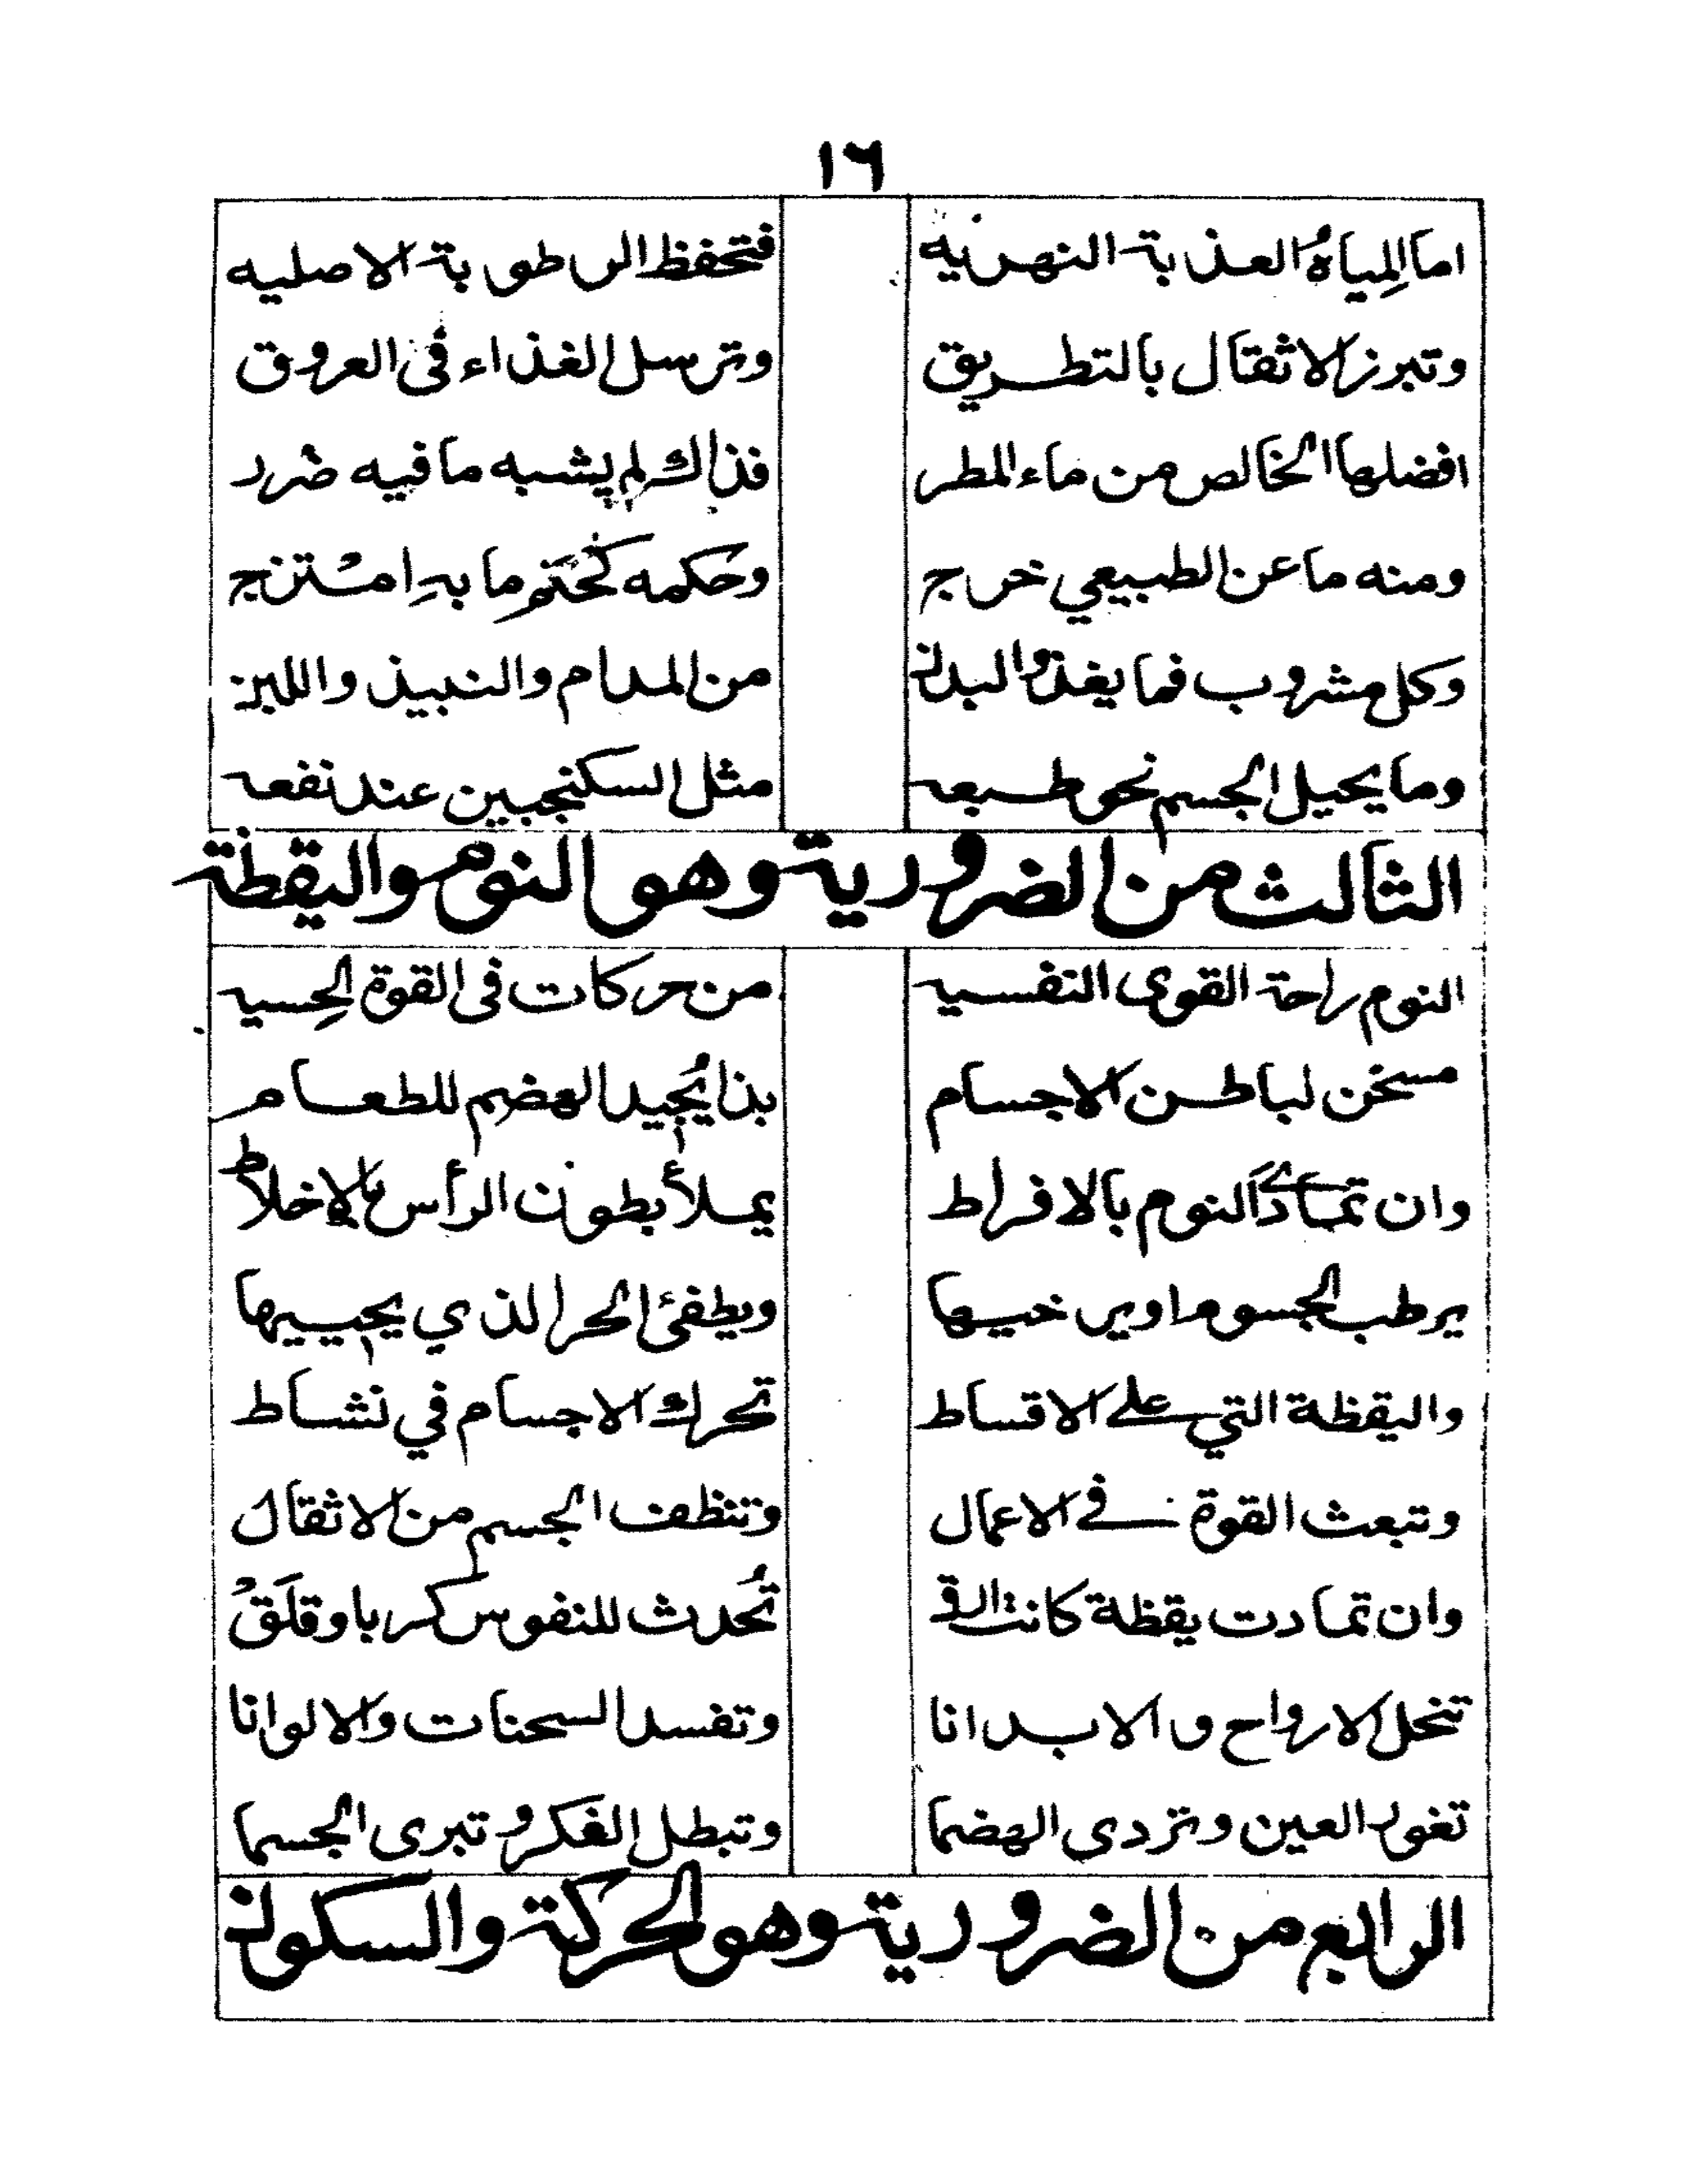 ١٦
اما المِياهُ العذبة النهريه فتحفظ الرطوبة الاصليه
وتبرز الاثقال بالتطريق وترسل الغذاء فى العروق
افضلها الخالص من ماء المطر فذاك لم يشبه ما فيه ضرر
ومنه ما عن الطبيعي خرج وحكمه كحكم ما بهِ امتزج
وكل مشروب فما يغذوا البدن من المدام والنبيذ واللبن
وما يحيل الجسم نحو طبعه مثل السكنجبين عند نفعه
الثالث من الضرورية وهو النوم واليقظة
النوم راحة القوى النفسيه من حركات فى القوة الحِسيه
مسخن لباطن الاجسام بذا يُجيد الهضم للطعام
وان تمادَى النوم بالافراط يملأ بطون الرأس بالاخلاط
يرطب الجسوم او يرخيها ويطفئ الحر الذي يحييها
واليقظة التي على الاقساط تحرك الاجسام في نشاط
وتبعث القوة في الاعمال وتنظف الجسم من الاثقال
وان تمادت يقظة كانت ارق تُحَدث للنفوس كربا وقلَقْ
تنحل الارواح و الابدانا وتفسد السحنات والالوانا
تغور العين وتردى الهضما وتبطل الفكر وتبرى الجسما
الرابع من الضرورية وهو الحركة والسكون